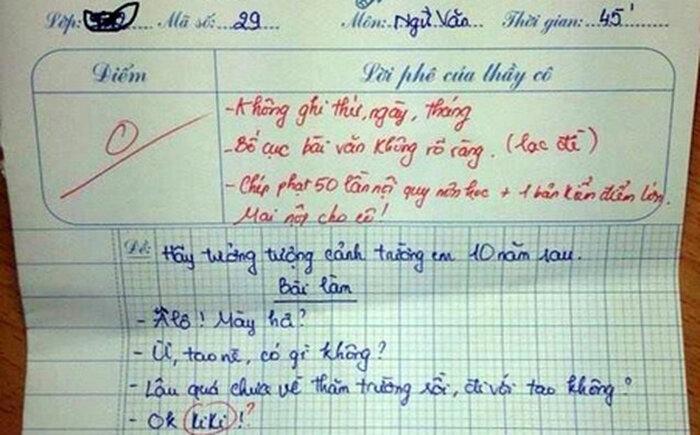 Lớp: Mã số: 29 Môn: Ngữ Văn Thời gian: 45'
Điểm Lời phê của thầy cô
0
- Không ghi thứ, ngày, tháng
- Bố cục bài văn không rõ ràng. (lạc đề)
- Chép phạt 50 lần nội quy môn học + 1 bản kiểm điểm lớn.
Mai nộp cho cô!
Đề: Hãy tưởng tượng cảnh trường em 10 năm sau.
Bài làm
- Alô! Mày hả?
- Ừ, tao nè, có gì không?
- Lâu quá chưa về thăm trường rồi, đi với tao không?
- Ok kiki!?